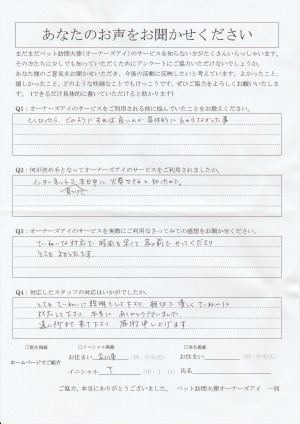 あなたのお声をお聞かせください
まだまだペット訪問火葬(オーナーズアイ)のサービスを知らない方がたくさんいらっしゃいます。
そのかたたちに少しでも知っていただくためにアンケートにご協力いただけないでしょうか。
あなた様のご意見をお聞かせいただき、今後の活動に反映したいと考えています。よかったこと、
嬉しかったこと、どのような些細なことでもけっこうです。ぜひご協力をよろしくお願いいたしま
す。(できるだけ具体的に書いていただけると助かります)
Q1:オーナーズアイのサービスをご利用される前に悩んでいたことをお教えください。
どのようにすれば良いのか 具体的に わからなかった事
Q2:何が決め手となってオーナーズアイのサービスをご利用されましたか。
インターネットで、本日中に 火葬できると 知ったので。
Q3:オーナーズアイのサービスを実際にご利用なさってみての感想をお聞かせください。
ていねいな対応で 時間も早くて 家の前で やってくださり
とても よかったです。
Q4:対応したスタッフの対応はいかがでしたか。
とても ていねいに 説明もして下さり、親切で 優しく ていねいに
対応して下さり、本当に ありがとうございました。
遠い所まで 来て下さり 感謝申し上げます
□匿名掲載 □イニシャル掲載 □実名掲載
ホームページでご紹介
お住まい (例:中央区) お住まい (例:中央区)
イニシャル Y (例:I.H) 氏名
ご協力、本当にありがとうございました。 ペット訪問火葬オーナーズアイ 一同